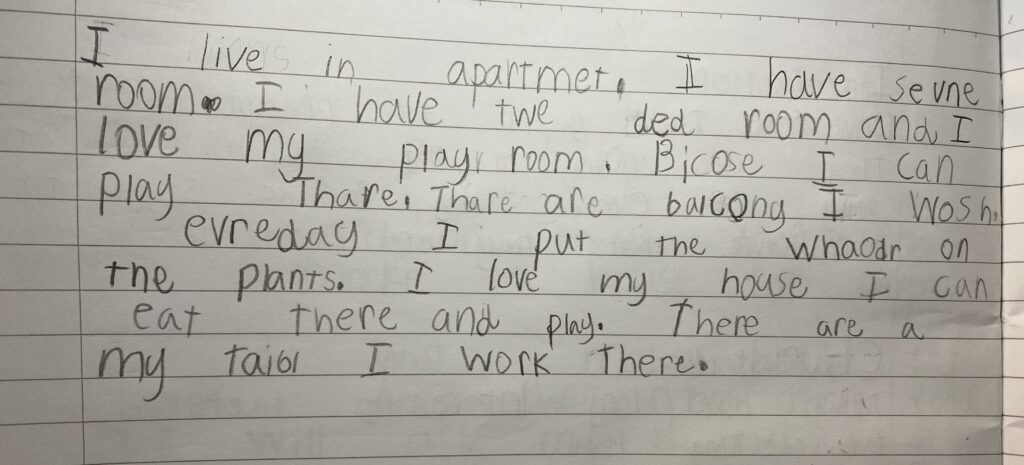 I live in apartmet. I have sevne
room. I have twe ded room and I
love my play room. Bicose I can
play Thare. Thare are balcony I wosh.
evreday I put the whaodr on
the plants. I love my house I can
eat there and play. There are a
my taibl I work there.